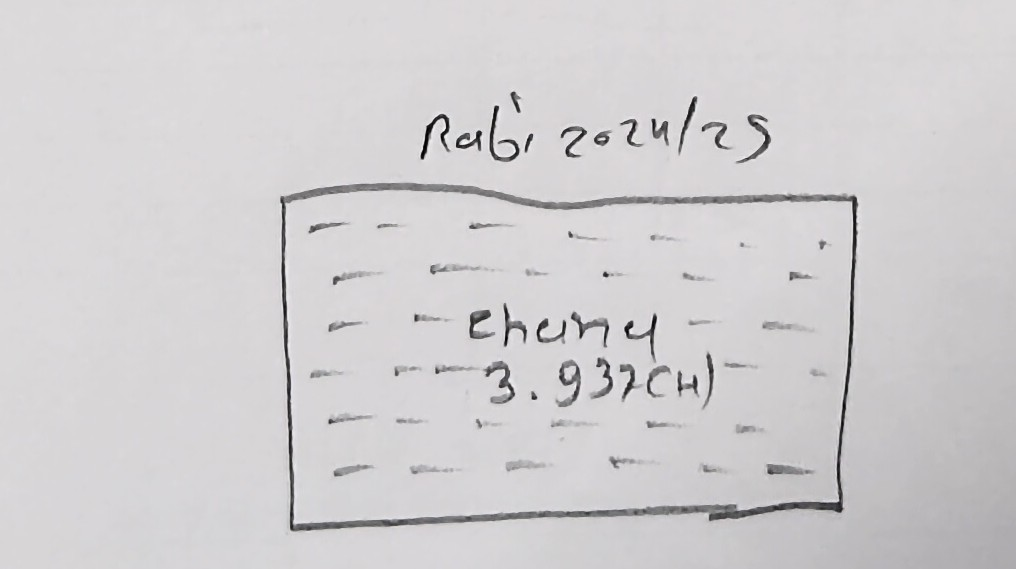 Rabi 2024/25
Chana
3.937(H)